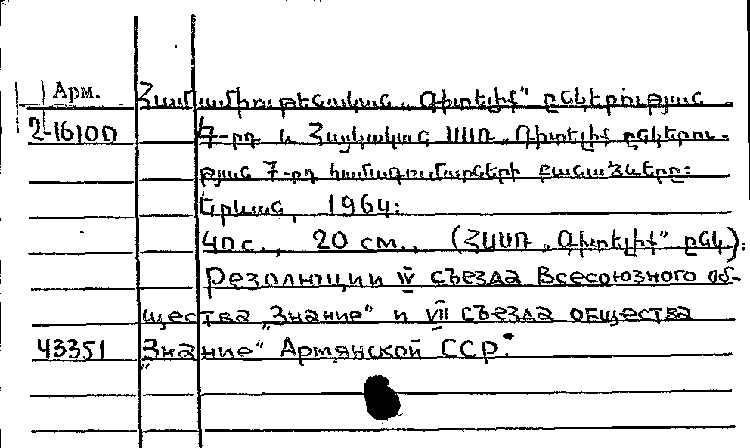 Арм.
Համամիութենական „Գիտելիք" ընկերության
2-16100 7-րդ և Հայկական ՍՍՌ „Գիտելիք ընկերու-
թյան 7-րդ համագումարների բանաձևերը:
Երևան, 1964:
40 с., 20 см., (ՀՍՍՌ „Գիտելիք" ընկ):
Резолюции IV съезда Всесоюзного об-
щества „Знание" и VII съезда общества
43351 „Знание" Армянской ССР.